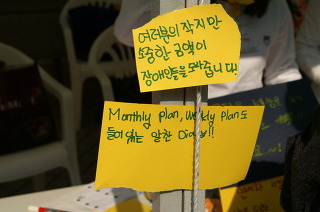 여러분의 작지만
소중한 금액이
장애인들을 도와줍니다!
Monthly Plan, Weekly Plan도
들어있는 알찬 Diary!!